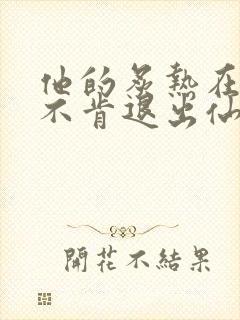 他的炙熱在
不肯退出仙
開花不結果